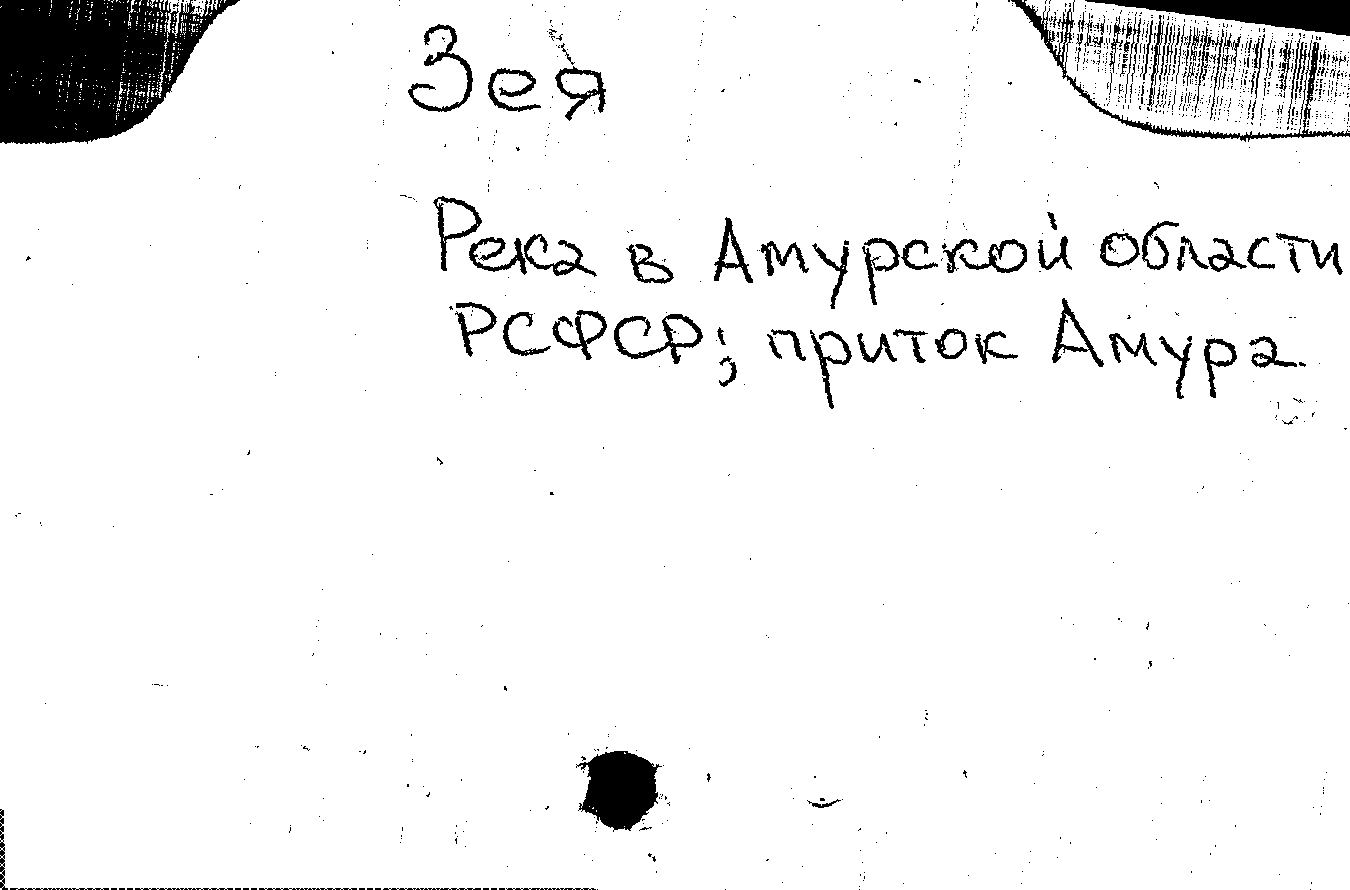 Зея
Река в Амурской области
РСФСР; приток Амура